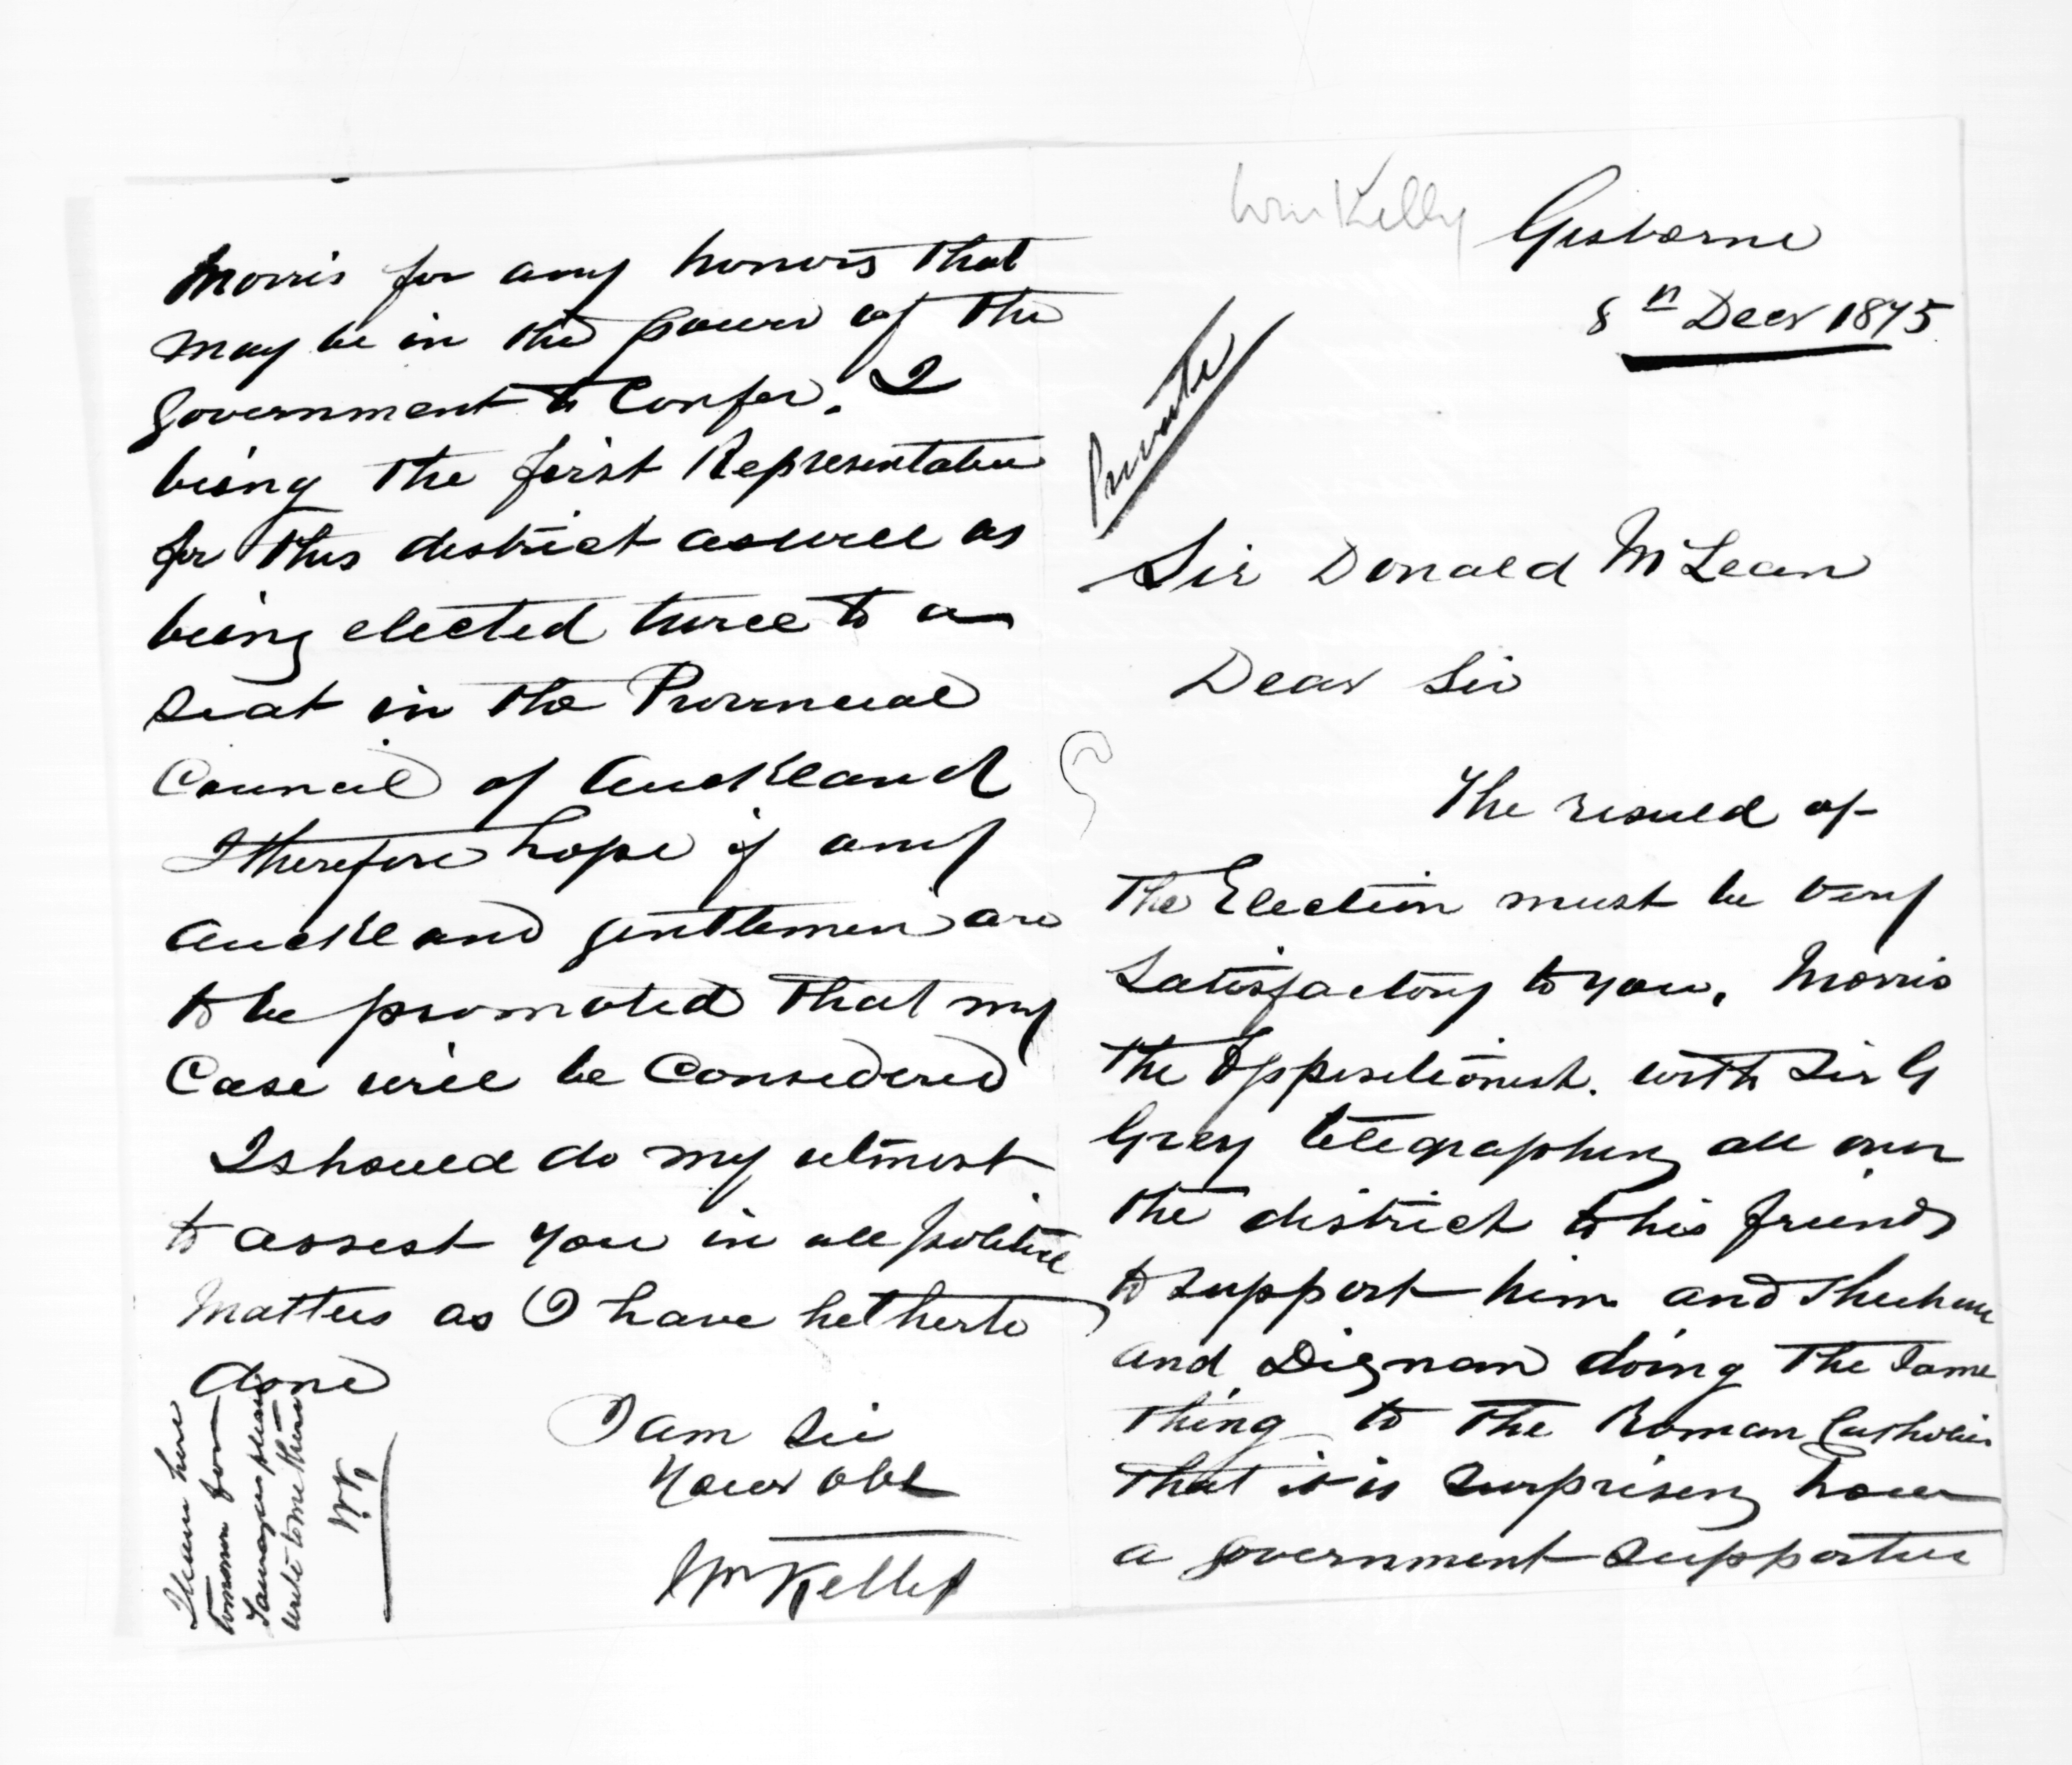 Wm Kelly
Gisborne
8th Decr 1875
Private
Sir Donald McLean
Dear Sir
The result of
the Election must be very
satisfactory to you, Morris
the Oppositionist. with Sir G
Grey telegraphing all over
the district to his friends
to support him and Sheehan
and Dignan doing the same
thing to the Roman Catholics
that it is surprising how
a government supporter
Morris for any honors that
may be in the power of the
Government to Confer. I
being the first Representative
for this district aswell as
being elected twice to a
seat in the Provincial
Council of Auckland
I therefore hope if any
Auckland gentlemen are
to be promoted that my
Case will be Considered
I should do my utmost
to assist you in all political
Matters as I have hetherto
done
I am Sir
Your obt
Wm Kelly
I leave here
tomorrow for
Tauranga please
write to me there
W.K.